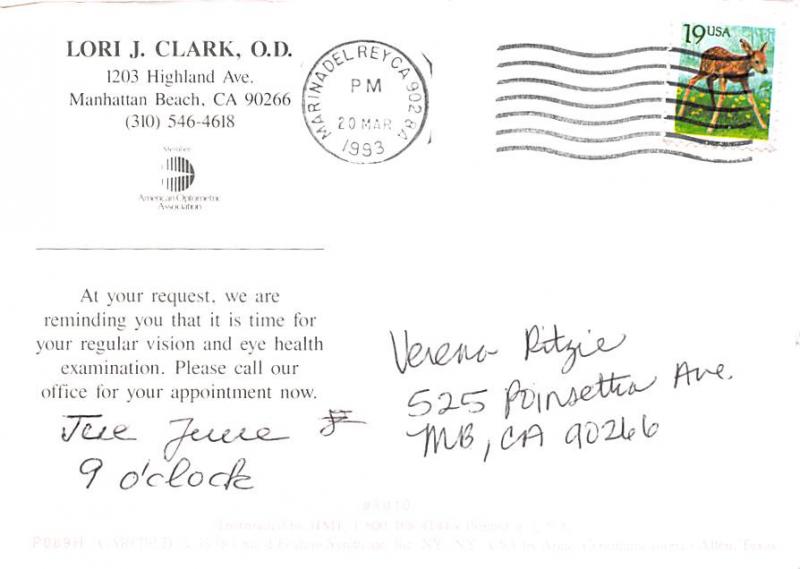 LORI J. CLARK, O.D.
1203 Highland Ave.
Manhattan Beach, CA 90266
(310) 546-4618
Member
American Optometric
Association
MARINA DEL REY CA 902
PM
20 MAR
1993
19 USA
At your request, we are
reminding you that it is time for
your regular vision and eye health
examination. Please call our
office for your appointment now.
Tue June
9 o'clock
Verena Ritzie
525 Poinsettia Ave.
MB, CA 90266